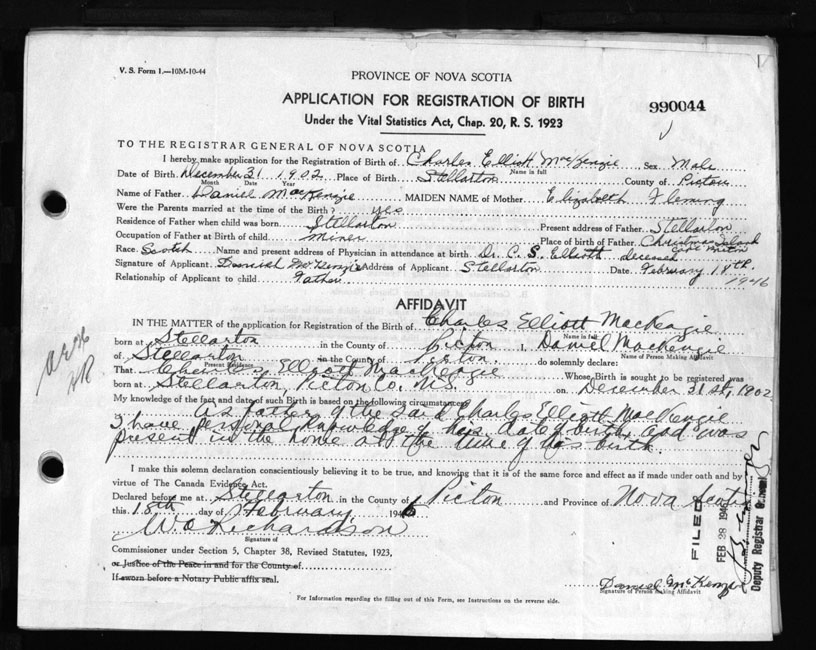 V. S. Form 1.—10M-10-44
PROVINCE OF NOVA SCOTIA
APPLICATION FOR REGISTRATION OF BIRTH
990044
Under the Vital Statistics Act, Chap. 20, R. S. 1923
TO THE REGISTRAR GENERAL OF NOVA SCOTIA
I hereby make application for the Registration of Birth of Charles Elliott MacKenzie Sex Male
Name in full
Date of Birth December 31 1902 Place of Birth Stellarton County of Pictou
Month Date Year
Name of Father Daniel MacKenzie MAIDEN NAME of Mother Elizabeth Fleming
Were the Parents married at the time of the Birth? yes
Residence of Father when child was born Stellarton Present address of Father Stellarton
Occupation of Father at Birth of child miner Place of birth of Father Christmas Island Cape Breton
Race Scotch Name and present address of Physician in attendance at birth Dr. C. S. Elliott deceased
Signature of Applicant Daniel McKenzie Address of Applicant Stellarton Date February 18th. 1946
Relationship of Applicant to child Father
AFFIDAVIT
IN THE MATTER of the application for Registration of the Birth of Charles Elliott MacKenzie
Name in full
born at Stellarton in the County of Picton I, Daniel MacKenzie
Name of Person Making Affidavit
of Stellarton in the County of Picton do solemnly declare:
Present Residence
That Charles Elliott MacKenzie Whose Birth is sought to be registered was
born at Stellarton, Picton Co. N.S. on December 31st, 1902
My knowledge of the fact and date of such Birth is based on the following circumstances:
As father of the said Charles Elliott MacKenzie
I have personal knowledge of his date of birth, and was
present in the home at the time of his birth.
I make this solemn declaration conscientiously believing it to be true, and knowing that it is of the same force and effect as if made under oath and by
virtue of The Canada Evidence Act.
Declared before me at Stellarton in the County of Picton and Province of Nova Scotia
this 18th day of February 1946
W. O. Richardson
Signature of
Commissioner under Section 5, Chapter 38, Revised Statutes, 1923,
or Justice of the Peace in and for the County of
If sworn before a Notary Public affix seal.
Daniel McKenzie
Signature of Person Making Affidavit
For Information regarding the filling out of this Form, see Instructions on the reverse side.
FILED
FEB 28 1946
Deputy Registrar General